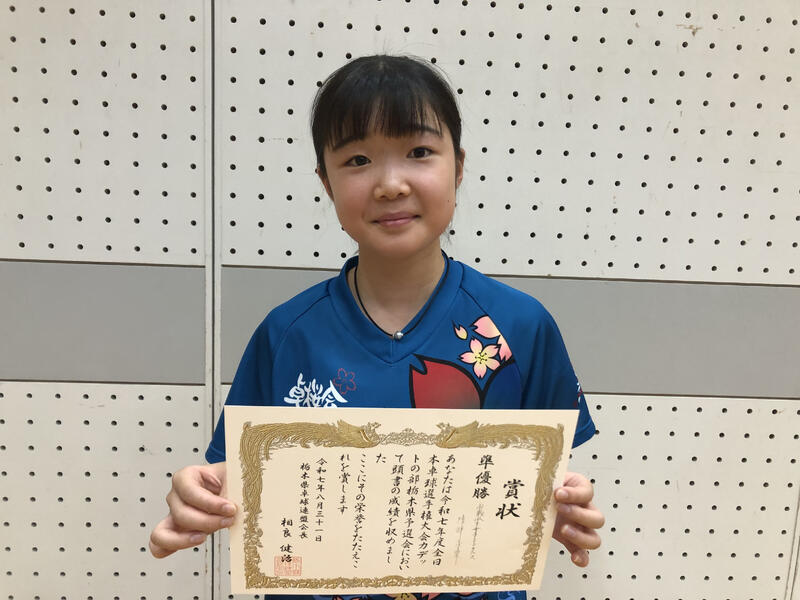 卓桜会
賞状
準優勝
あなたは令和七年度全日
本卓球選手権大会カデッ
トの部栃木県予選会におい
て頭書の成績を収めまし
た
ここにその栄誉をたたえこ
れを賞します
令和七年八月三十一日
栃木県卓球連盟会長
相良 健治